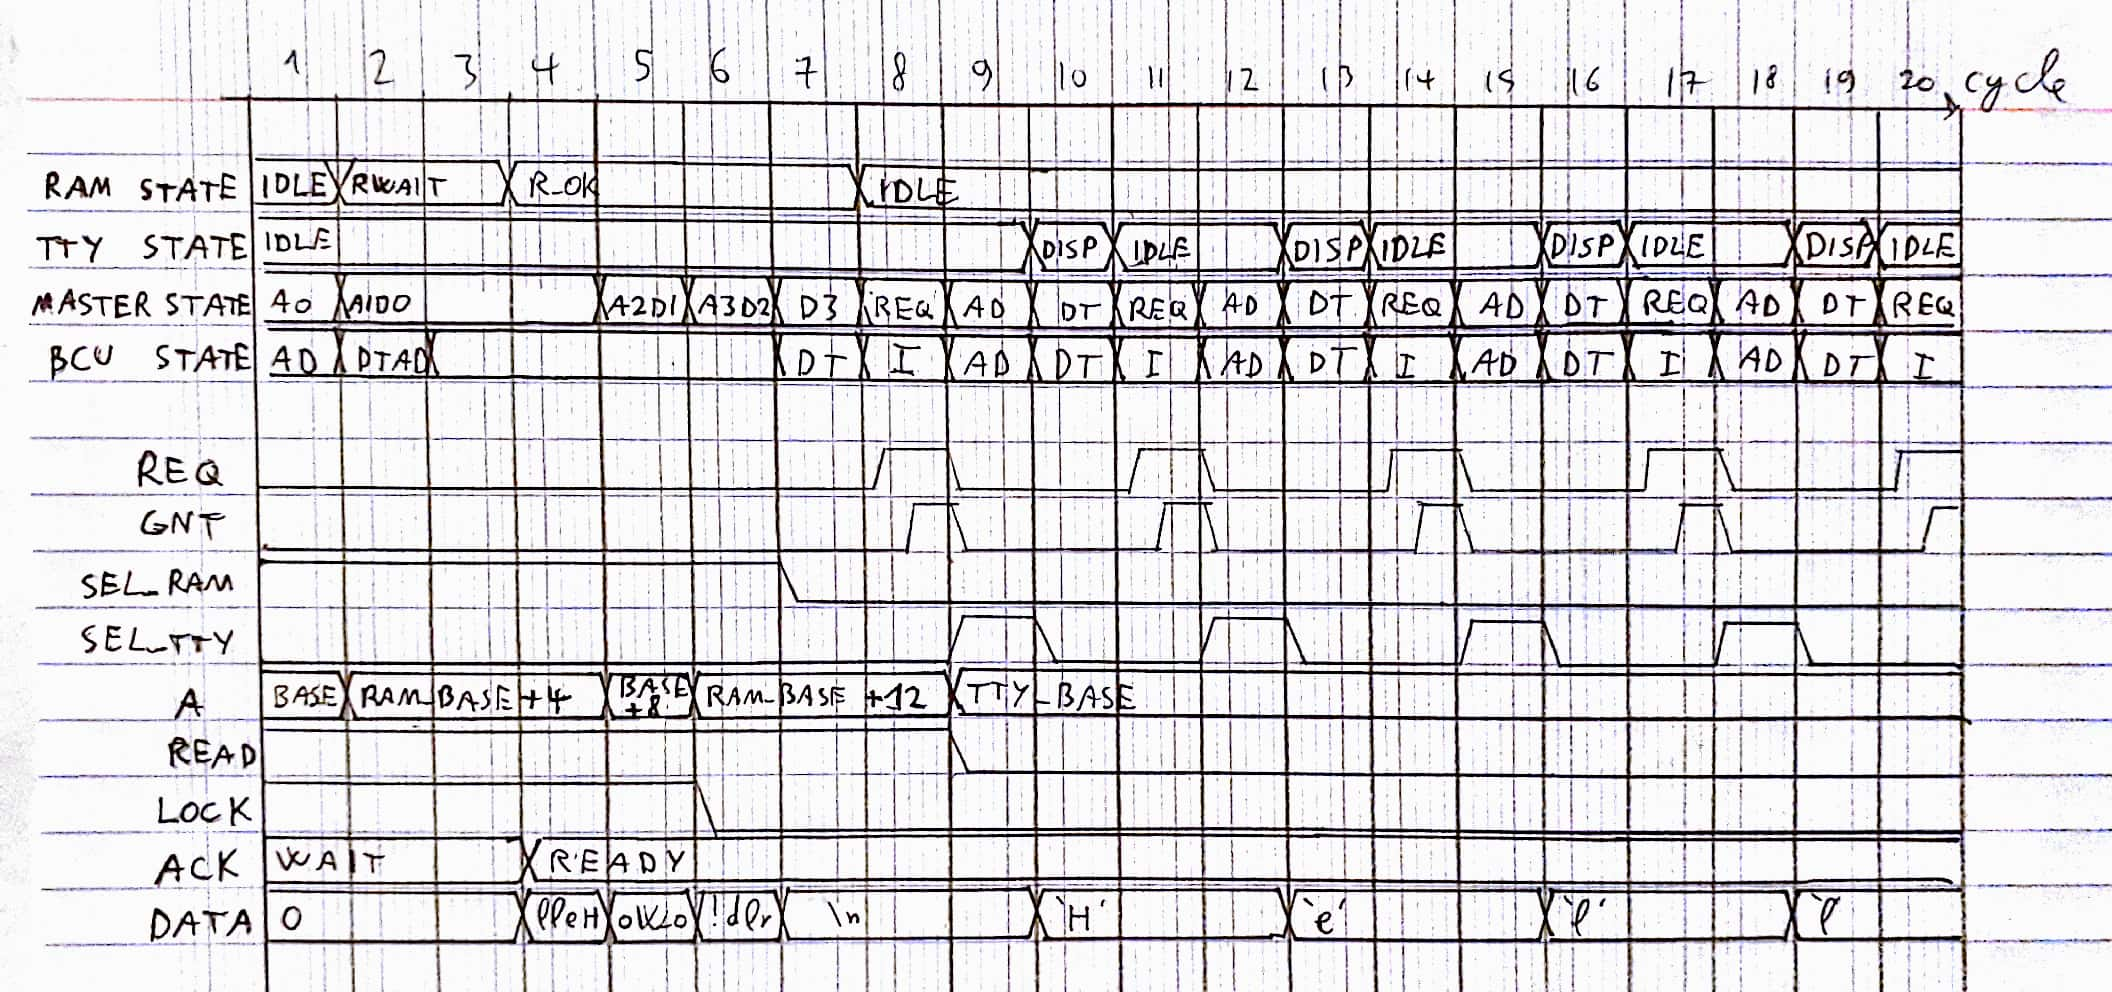 1 2 3 4 5 6 7 8 9 10 11 12 13 14 15 16 17 18 19 20 cycle
RAM STATE IDLE RWAIT R_OK IDLE
TTY STATE IDLE DISP IDLE DISP IDLE DISP IDLE DISP IDLE
MASTER STATE A0 A1D0 A2D1 A3D2 D3 REQ AD DT REQ AD DT REQ AD DT REQ AD DT REQ
BCU STATE AD DTAD DT I AD DT I AD DT I AD DT I AD DT I
REQ
GNT
SEL_RAM
SEL_TTY
A BASE RAM_BASE +4 BASE +8 RAM_BASE +12 TTY_BASE
READ
LOCK
ACK WAIT READY
DATA 0 lleH !dlr \n 'H' 'e' 'l' 'l